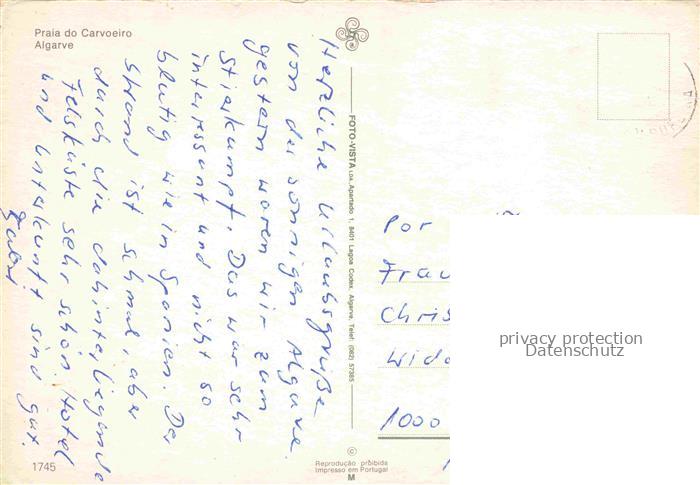 Praia do Carvoeiro
Algarve
Herzliche Urlaubsgrüße
von der sonnigen Algarve.
gestern waren wir zum
Stierkampf. Das war sehr
interessant und nicht so
blutig wie in Spanien. Der
Strand ist schmal, aber
durch die dahinterliegende
Felsküste sehr schön. Hotel
und Unterkunft sind gut.
FOTO-VISTA LDA. Apartado 1, 8401 Lagoa Codex, Algarve, Telef. (082) 57385
Por
Frau
Chris
Wid
1000
privacy protection
Datenschutz
1745
©
Reprodução proibida
Impresso em Portugal
M